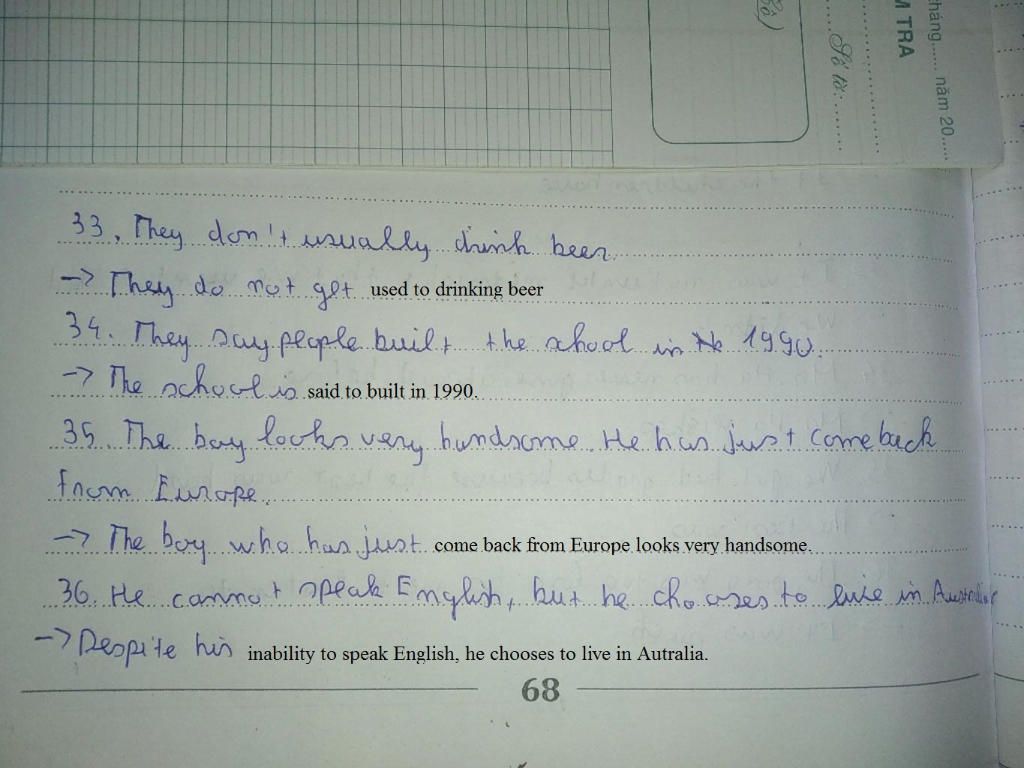 tháng...... năm 20.....
M TRA
Số tờ:......
33. They don't usually drink beer.
-> They do not get used to drinking beer
34. They say people built the school in 1990.
-> The school is said to built in 1990.
35. The boy looks very handsome. He has just come back
from Europe.
-> The boy who has just come back from Europe looks very handsome.
36. He cannot speak English, but he chooses to live in Australia
-> Despite his inability to speak English, he chooses to live in Autralia.
68